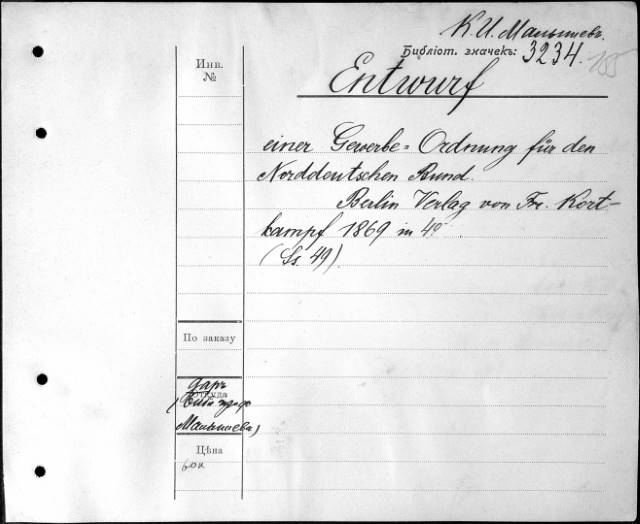 К. И. Малышевъ.
Библіот. значекъ: 3234. 155
Инв.
№
Entwurf
einer Gewerbe-Ordnung für den
Norddeutschen Bund.
Berlin Verlag von Fr. Kort-
kampf 1869 in 4°
(Ss. 49)
По заказу
даръ
Откуда
Малышева)
Цѣна
60к